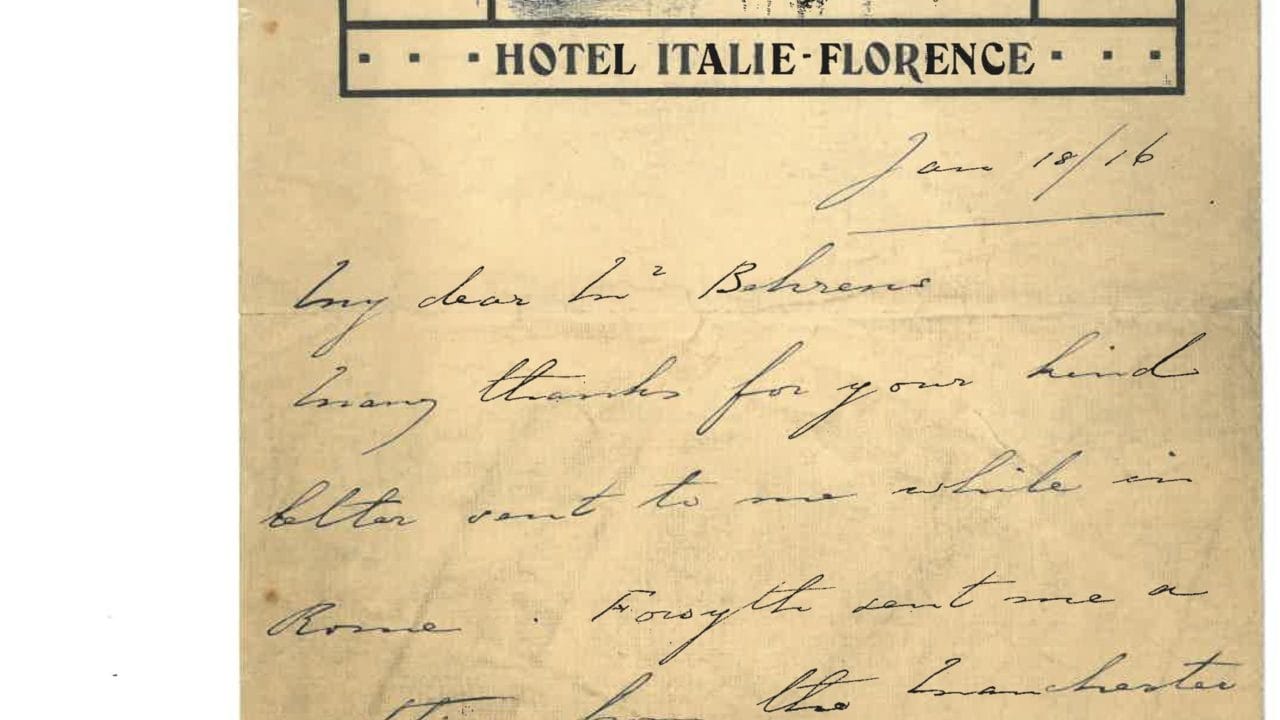 HOTEL ITALIE-FLORENCE
Jan 18/16
My dear Mr Behrens
Many thanks for your kind
letter sent to me while in
Rome. Forsyth sent me a
the Manchester